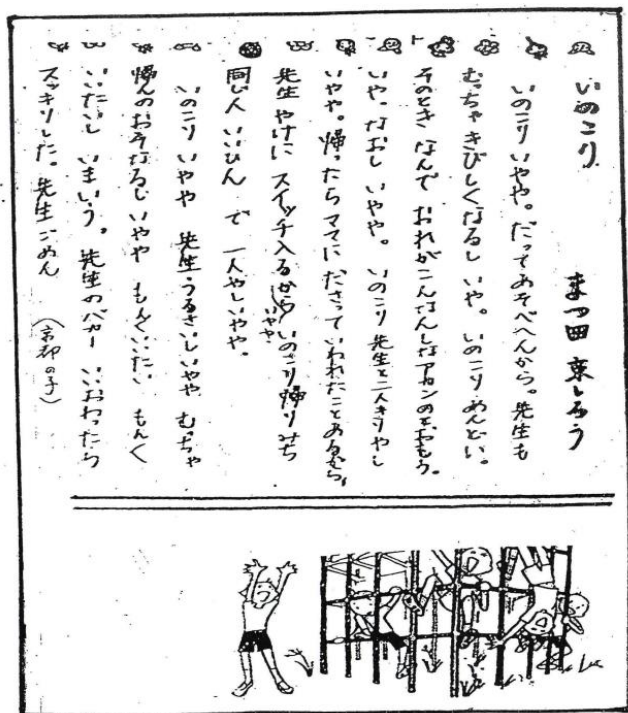 いのこり
まつ田 東しろう
いのこりいやや。だってあそべへんから。先生も
むっちゃきびしくなるし いや。いのこりめんどい。
そのとき なんで おれがこんなんしなアカンのとおもう。
いや。なおし いやや。 いのこり先生と二人きりやし
いやや。帰ったらママに ださっていわれたことあるから、
先生やけに スイッチ入るから いやや いのこり帰りみち
同じ人 いいひん で 一人やしいやや。
いのこり いやや 先生うるさいしいやや むっちゃ
帰んのおそなるし いやや もんくいいたい もんく
いいたいし いまいう。 先生のバカー いいおわったら
スッキリした。先生ごめん (京都の子)